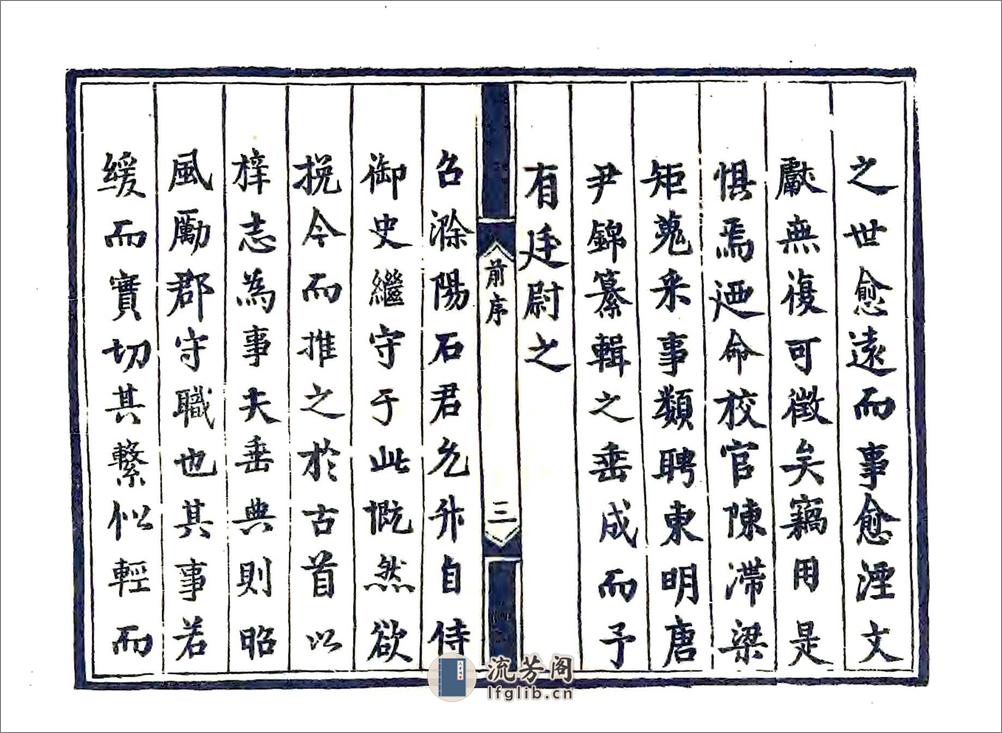 之世愈遠而事愈湮文
獻無復可徵矣竊用是
惧焉廼命校官陳滯梁
矩蒐采事類聘東明唐
尹錦纂輯之垂成而予
有廷尉之
前序
三
召滁陽石君允升自侍
御史繼守于此慨然欲
挽今而推之於古首以
梓志為事夫垂典則昭
風勵郡守職也其事若
緩而實切其繫似輕而
流芳阁
lfglib.cn